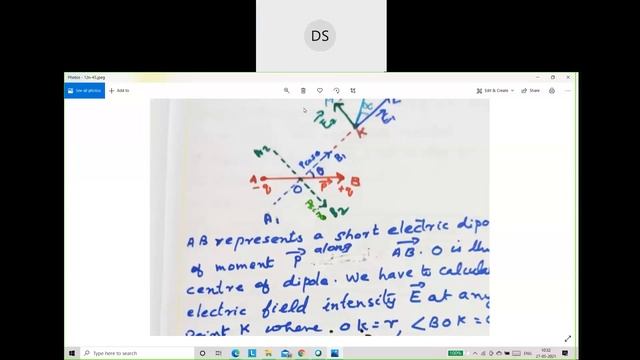 DS
Photos - 12n-45.jpeg
See all photos
Add to
Edit & Create
Share
K
A2
Pcosθ
B1
θ
A
B
-q
O
P
+q
A1
B2
AB represents a short electric dipo
of moment P along AB. O is the
centre of dipole. We have to calcula
electric field intensity E at any
point K where. OK = r, ∠BOK =
Type here to search
100%
10:32
27-05-2021